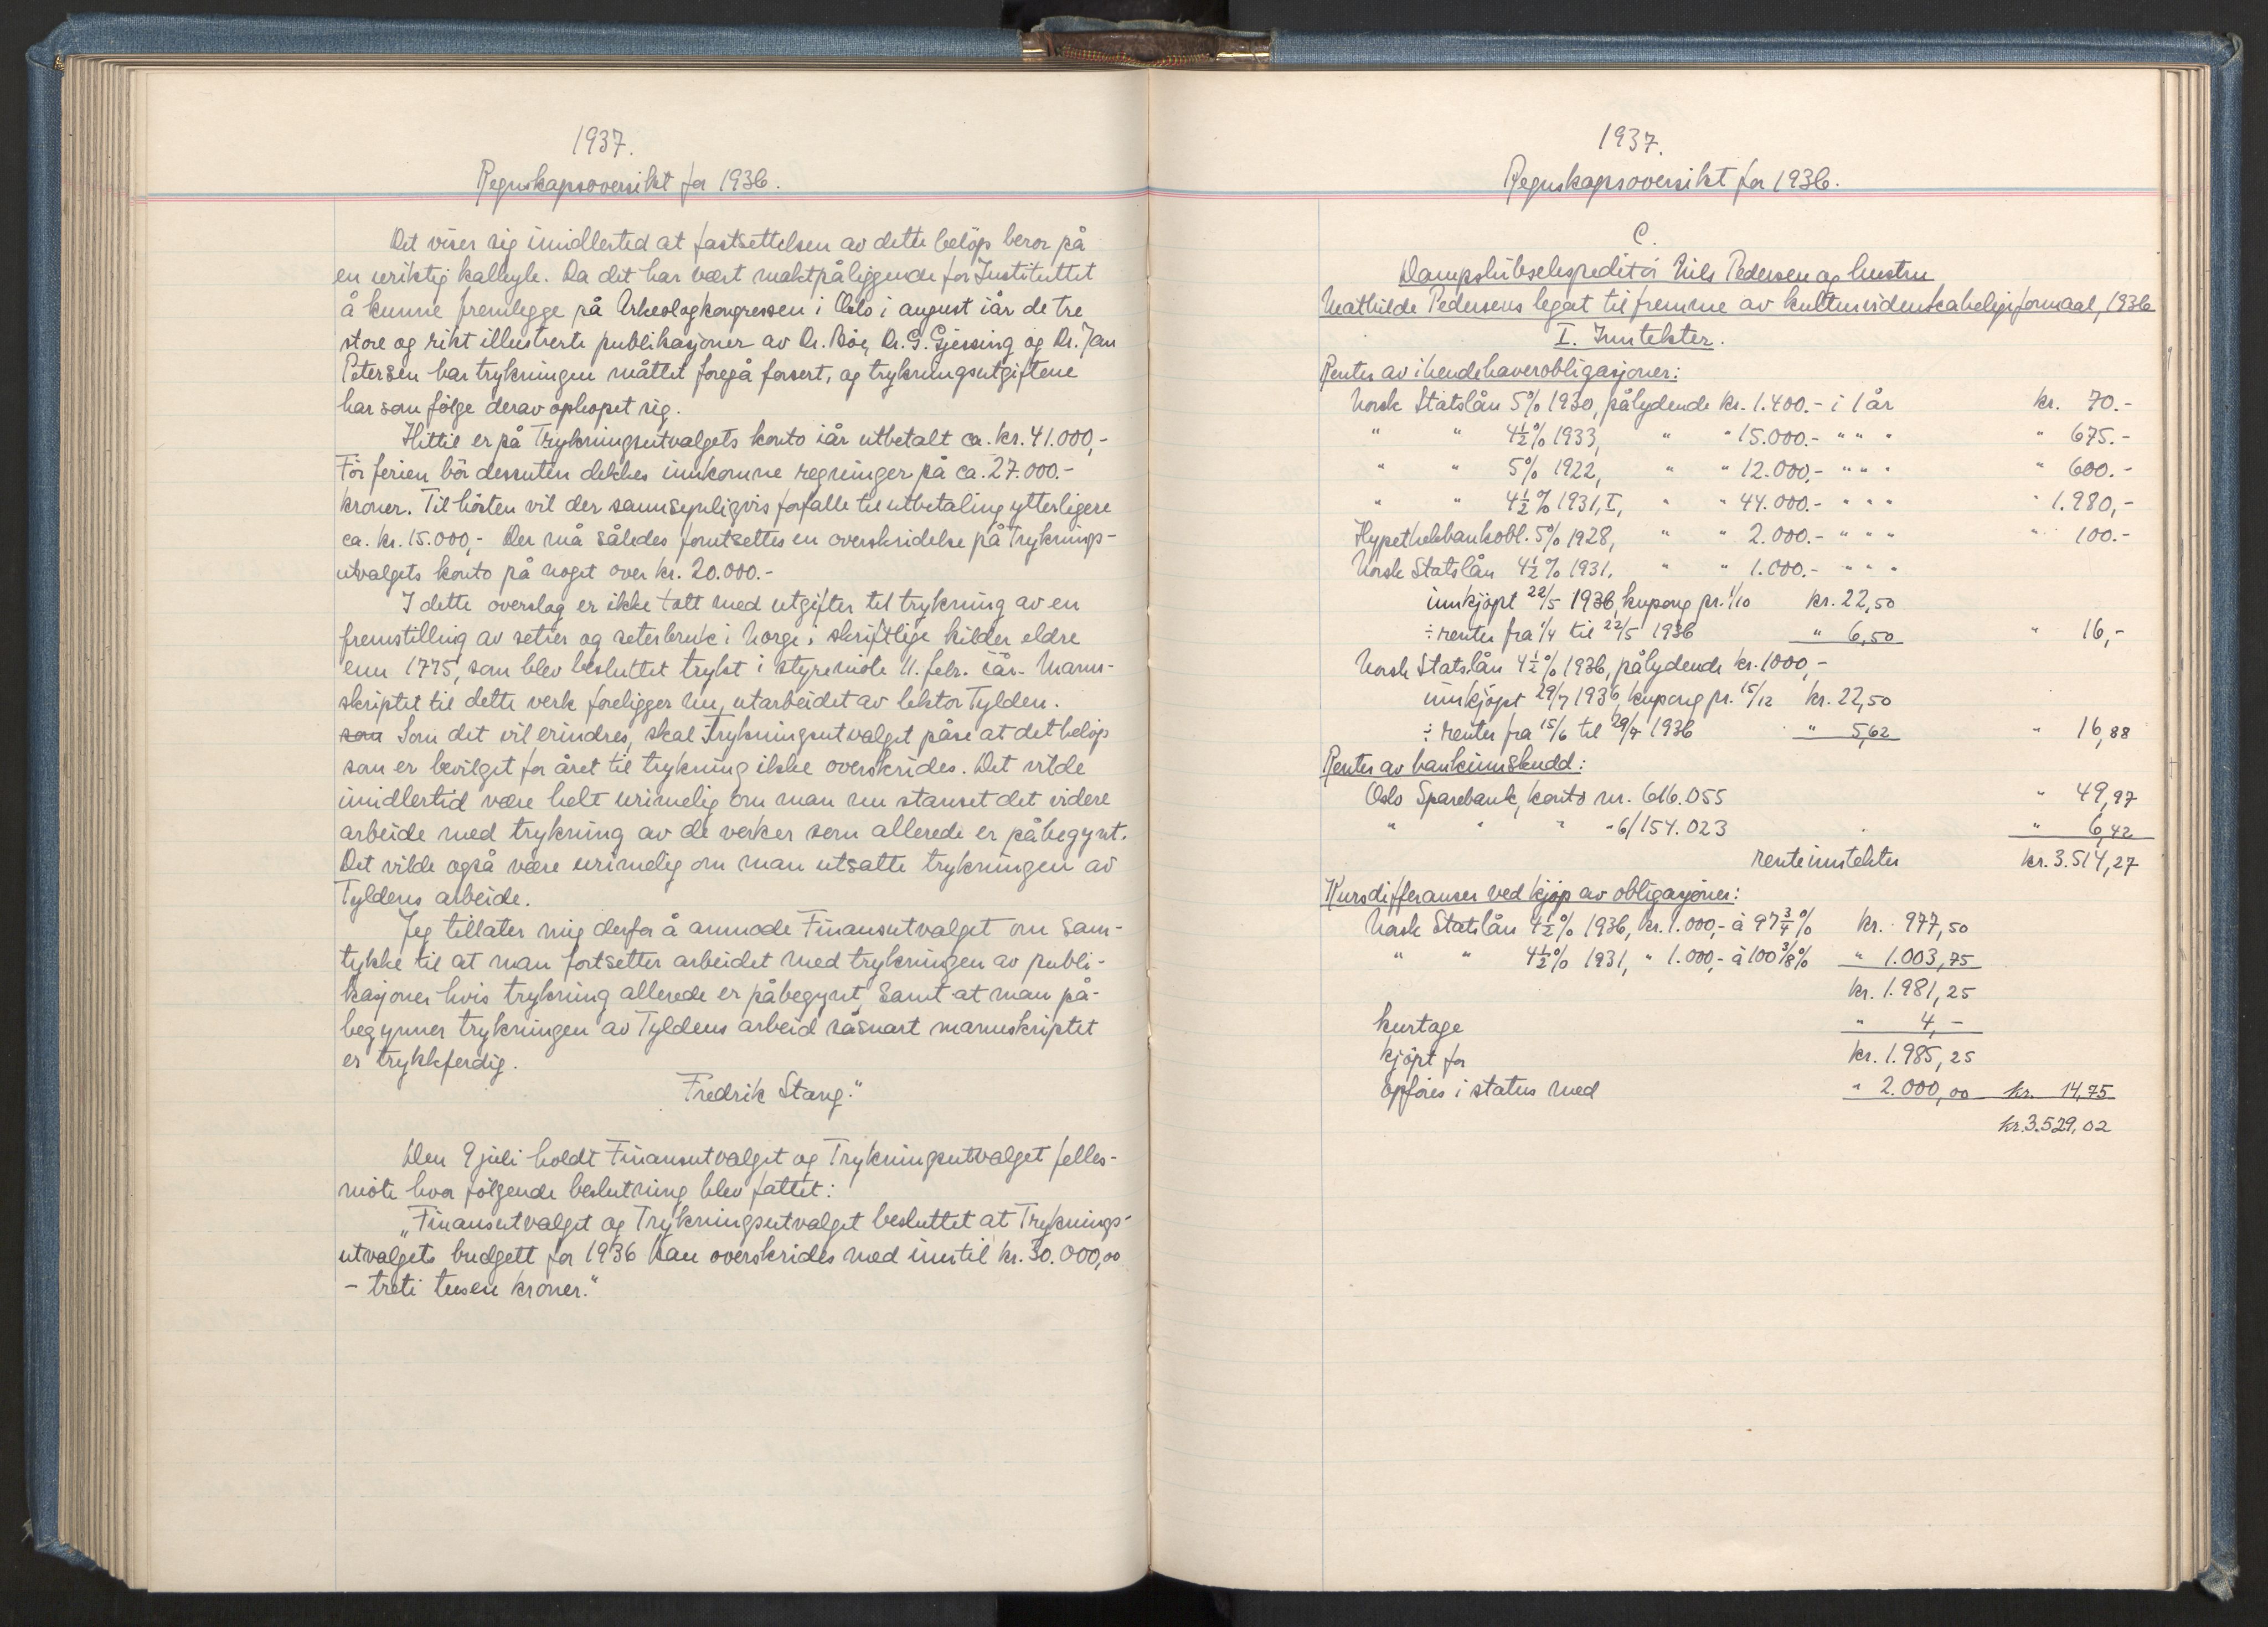 1937.
Regnskapsoversikt for 1936.
Det viser sig imidlertid at fastsettelsen av dette beløp beror på
en uriktig kalkyle. Da det har vært maktpåliggende for Instituttet
å kunne fremlegge på Arkeologkongressen i Oslo i august iår de tre
store og rikt illustrerte publikasjoner av Dr. Bøe, Dr. G. Gjessing og Dr. Jan
Petersen har trykningen måttet foregå forsert, og trykningsutgiftene
har som følge derav ophopet sig.
Hittil er på Trykningsutvalgets konto iår utbetalt ca. kr. 41.000,-
Før ferien bör dessuten dekkes innkomne regninger på ca. 27.000.-
kroner. Til hösten vil der sannsynligvis forfalle til utbetaling ytterligere
ca. kr. 15.000,- Der må således forutsettes en overskridelse på Tryknings-
utvalgets konto på noget over kr. 20.000.-
I dette overslag er ikke tatt med utgifter til trykning av en
fremstilling av setrer og seterbruk i Norge i skriftlige kilder eldre
enn 1775, som blev besluttet trykt i styremöte 11. febr. iår. Manu-
skriptet til dette verk foreligger nu, utarbeidet av lektor Tylden.
som Som det vil erindres, skal Trykningsutvalget påse at det belöp
som er bevilget for året til trykning ikke overskrides. Det vilde
imidlertid være helt urimelig om man nu stanset det videre
arbeide med trykning av de verker som allerede er påbegynt.
Det vilde også være urimelig om man utsatte trykningen av
Tyldens arbeide.
Jeg tillater mig derfor å anmode Finansutvalget om sam-
tykke til at man fortsetter arbeidet med trykningen av publi-
kasjoner hvis trykning allerede er påbegynt, samt at man på-
begynner trykningen av Tyldens arbeid såsnart manuskriptet
er trykkferdig.
Fredrik Stang."
Den 9 juli holdt Finansutvalget og Trykningsutvalget felles-
möte hvor fölgende beslutning blev fattet:
„Finansutvalget og Trykningsutvalget besluttet at Tryknings-
utvalgets budgett for 1936 kan overskrides med inntil kr. 30.000,00
- treti tusen kroner."
1937.
Regnskapsoversikt for 1936.
C.
Dampskibsekspeditör Nils Pedersen og hustru
Mathilde Pedersens legat til fremme av kulturvidenskabelige formaal, 1936
I. Inntekter.
Renter av ihendehaverobligasjoner:
Norsk Statslån 5% 1930, pålydende kr. 1.400.- i 1 år kr. 70.-
" " 4½% 1933, " " 15.000.- " " " " 675.-
" " 5% 1922, " " 12.000,- " " " " 600.-
" " 4½% 1931, I, " " 44.000.- " " " " 1.980,-
Hypothekbankobl. 5% 1928, " " 2.000.- " " " " 100.-
Norsk Statslån 4½% 1931. " " 1.000.- " " "
innkjöpt 22/5 1936, kupong pr. 1/10 kr. 22,50
÷ renter fra 1/4 til 22/5 1936 " 6,50 " 16,-
Norsk Statslån 4½% 1936, pålydende kr. 1000,-
innkjöpt 29/7 1936, kupong pr. 15/12 kr. 22,50
÷ renter fra 15/6 til 29/7 1936 " 5,62 " 16,88
Renter av bankinnskudd:
Oslo Sparebank, konto nr. 616.055 " 49,97
" " " " 6/154.023 " 6,42
renteinntekter kr. 3.514,27
Kursdifferanser ved kjöp av obligasjoner:
Norsk Statslån 4½% 1936, kr. 1.000,- à 97¾% kr. 977,50
" " 4½% 1931, " 1.000,- à 100⅜% " 1.003,75
kr. 1.981,25
kurtage " 4,-
kjöpt for kr. 1.985,25
opföres i status med " 2.000,00 kr. 14,75
kr. 3.529,02